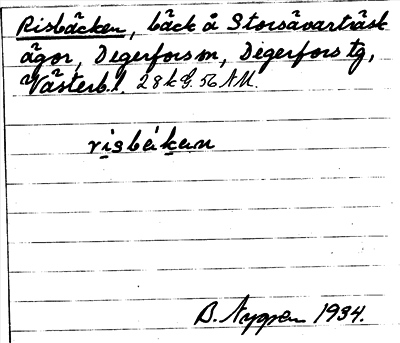 Risbäcken, bäck å Storsävarträsk
ägor, Degerfors sn, Degerfors tg,
Västerb.l. 28k G. 56 NM.
risbäkɐn
B. Nygren 1934.